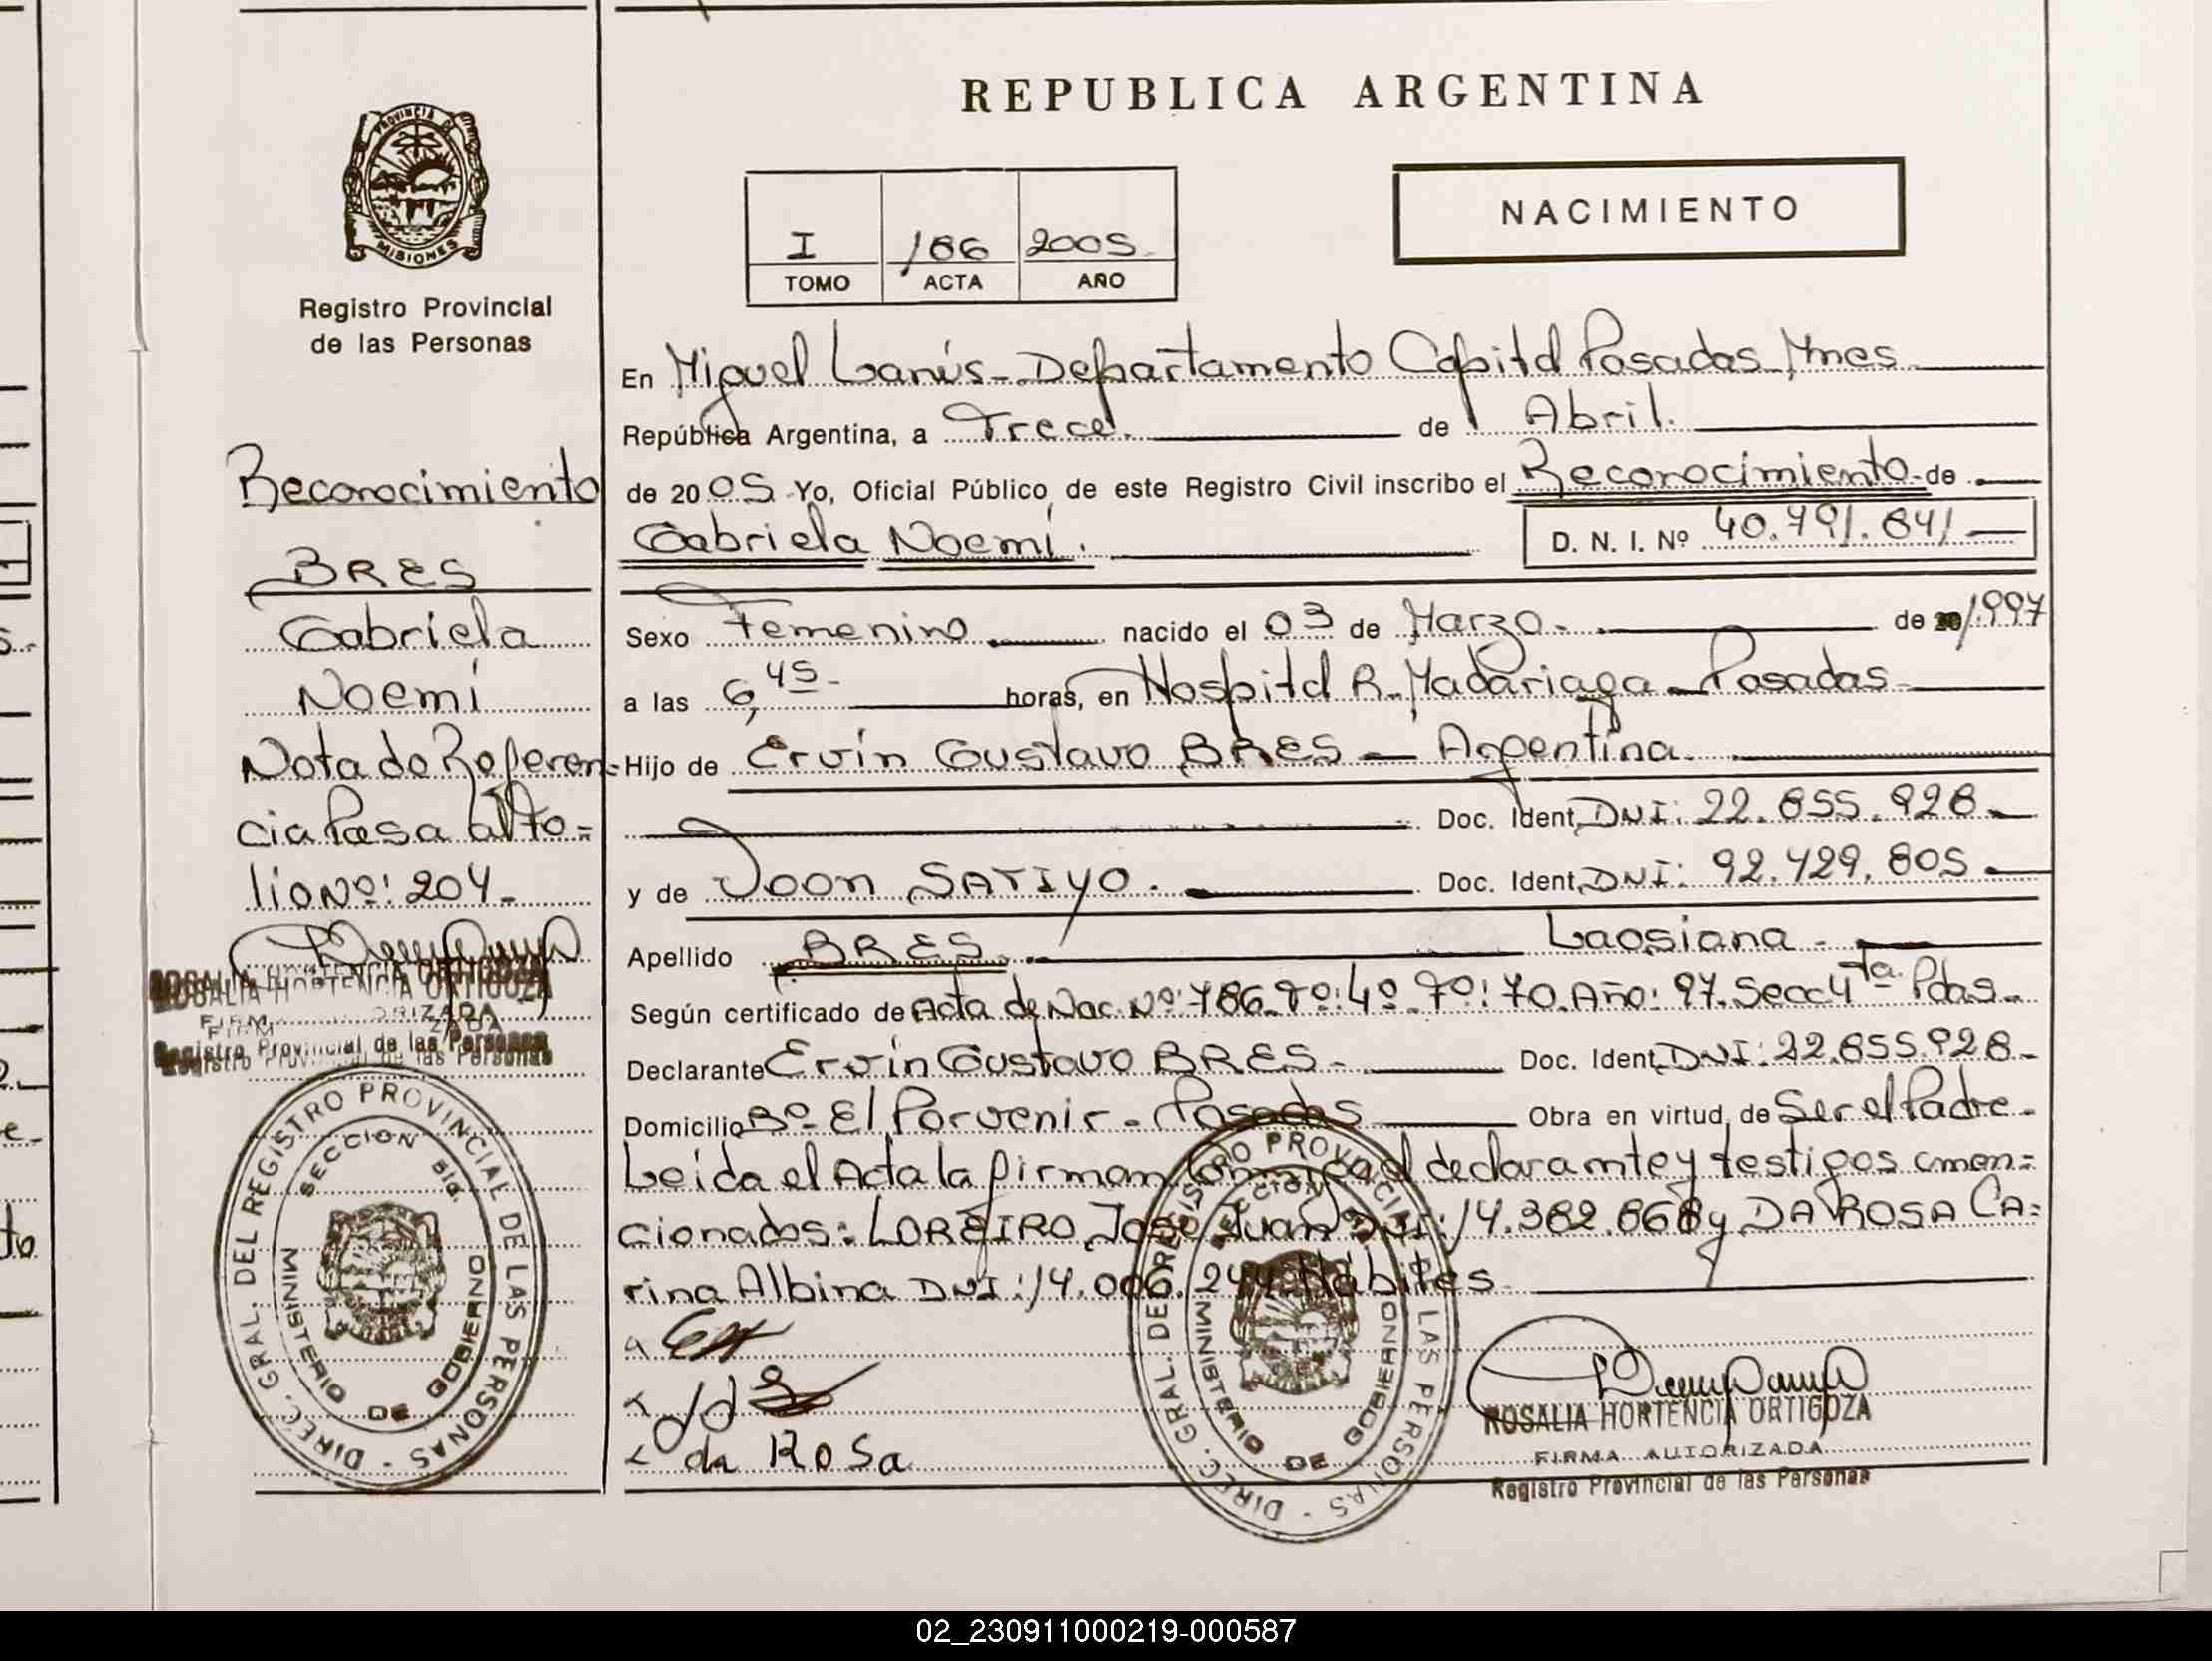 REPUBLICA ARGENTINA
PROVINCIA DE
MISIONES
Registro Provincial
de las Personas
I 186 2005
TOMO ACTA AÑO
NACIMIENTO
En Miguel Lanús - Departamento Capital Posadas Mnes
República Argentina, a Trece. de Abril.
de 2005 Yo, Oficial Público de este Registro Civil inscribo el Reconocimiento de
Gabriela Noemí. D. N. I. Nº 40.791.841
Sexo Femenino nacido el 03 de Marzo - de 20/1997
a las 6,45 - horas, en Hospital R. Madariaga - Posadas -
Hijo de Ervín Gustavo BRES - Argentina.
Doc. Ident. DNI: 22.855.928 -
y de Joon SATIYO. Doc. Ident. DNI: 92.429.805 -
Apellido BRES. Laosiana -
Según certificado de Acta de Nac. Nº: 786. Tº: 4º. Fº: 70. Año: 97. Secc 4ta. Pdas.
Declarante Ervín Gustavo BRES - Doc. Ident. DNI: 22.855.928 -
Domicilio Bº El Porvenir - Posadas Obra en virtud de Ser el Padre -
Leída el Acta la firman conmigo el declarante y testigos cmen=
cionados: LOREIRO José Juan DNI: 14.382.868 y DA ROSA CA=
rina Albina DNI: 14.006.244 Hábiles
da ROSa
ROSALIA HORTENCIA ORTIGOZA
FIRMA AUTORIZADA
Registro Provincial de las Personas
DIREC. GRAL. DEL REGISTRO PROVINCIAL DE LAS PERSONAS
MINISTERIO DE GOBIERNO
Reconocimiento
BRES
Gabriela
Noemí
Nota de Referen=
cia Pasa al fo=
lio Nº: 204 -
ROSALIA HORTENCIA ORTIGOZA
FIRMA AUTORIZADA
Registro Provincial de las Personas
DIREC. GRAL. DEL REGISTRO PROVINCIAL DE LAS PERSONAS
SECCION
MINISTERIO DE GOBIERNO
02_230911000219-000587